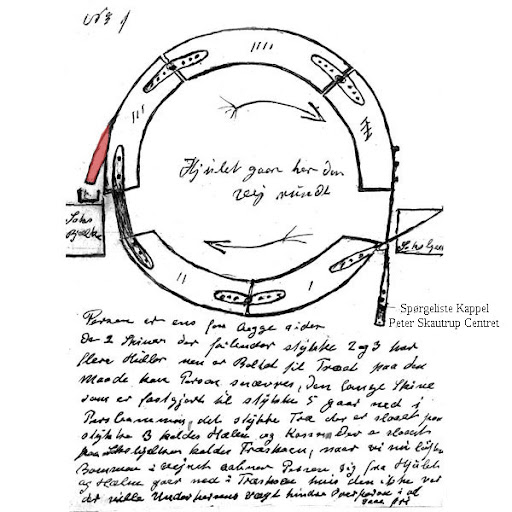 No 1
Hjulet gaar her den
vej rundt
Saks
Bjælke
Spørgeliste Kappel
Peter Skautrup Centret
Persen er ens fra begge sider
De 2 Skiner der forbinder stykke 2 og 3 har
flere Huller men er Boltet til Træet paa den
Maade kan Persen snævres, den lange Skine
som er fastgjort til stykke 5 gaar ned i
det stykke Træ der er slaaet paa
stykke 3 kaldes Hælen og Kassen Der er slaaet
paa Saksbjælken kaldes Træskoen, naar vi nu løfter
Bommen i vejret aabner Persen sig fra Hjulet
og Hælen gaar ned i Træskoen hvis den ikke var
der vilde Underpersens vægt hindre Overpersen i at
gaa fri